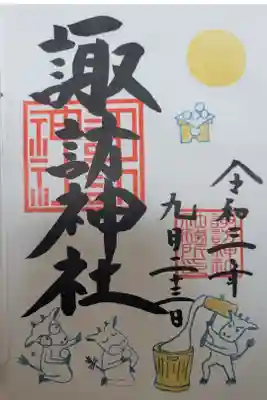 諏訪神社
令和三年
九月二十三日